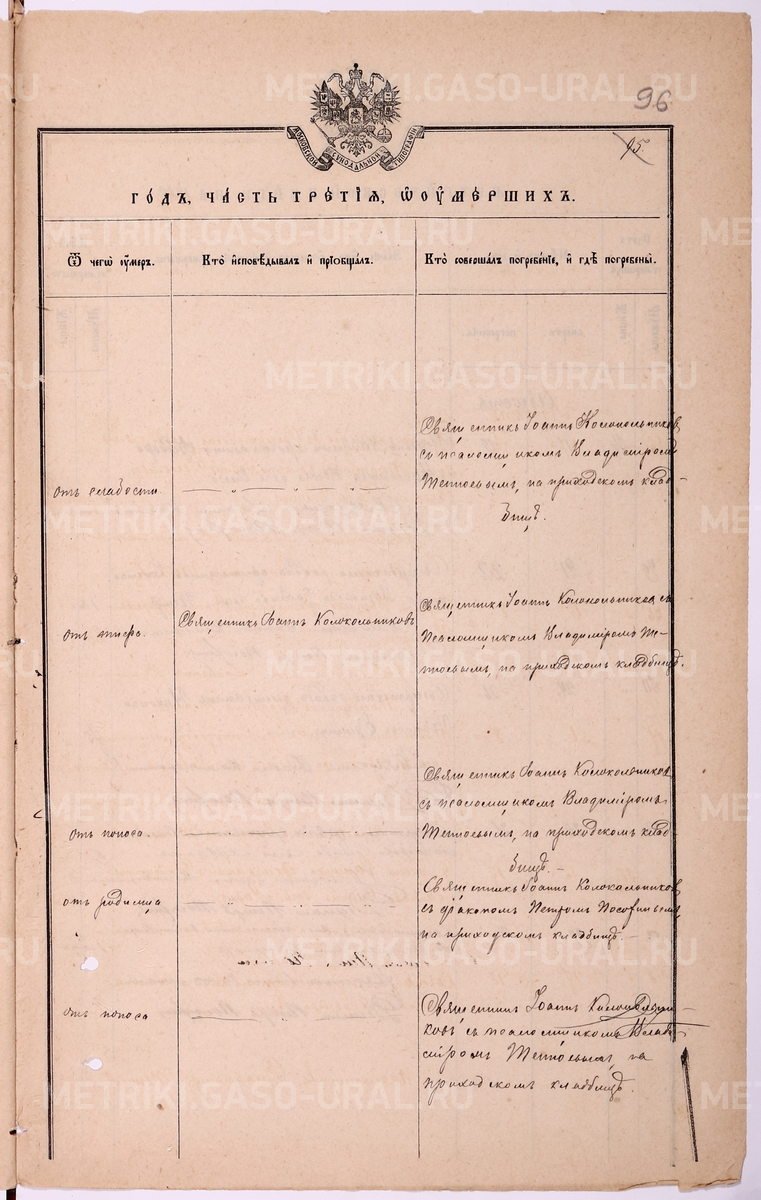 METRIKI.GASO-URAL.RU
96
95.
МОСКОВСКОЙ СѴНОДАЛЬНОЙ ТИПОГРАФІИ
ГОДЪ, ЧАСТЬ ТРЕТІЯ, Ѡ ОУМЕРШИХЪ.
Ѿ чегѡ оумеръ.
Кто исповѣдывалъ и пріобщалъ.
Кто совершалъ погребеніе, и гдѣ погребены.
отъ слабости.
Священникъ Іоаннъ Колокольниковъ
съ псаломщикомъ Владиміромъ
Тетюевымъ, на приходскомъ клад-
бищѣ.
отъ
Священникъ Іоаннъ Колокольниковъ
Священникъ Іоаннъ Колокольниковъ съ
Псаломщикомъ Владиміромъ Те-
тюевымъ, на приходскомъ кладбищѣ.
отъ поноса.
Священникъ Іоаннъ Колокольниковъ
съ псаломщикомъ Владиміромъ
Тетюевымъ, на приходскомъ клад-
бищѣ. –
отъ родимца
Священникъ Іоаннъ Колокальниковъ
съ діакономъ Петромъ
на приходскомъ кладбищѣ. –
отъ поноса
Священникъ Іоаннъ Колокольни-
ковъ съ псаломщикомъ Влад-
міромъ Тетюевымъ на
приходскомъ кладбищѣ.